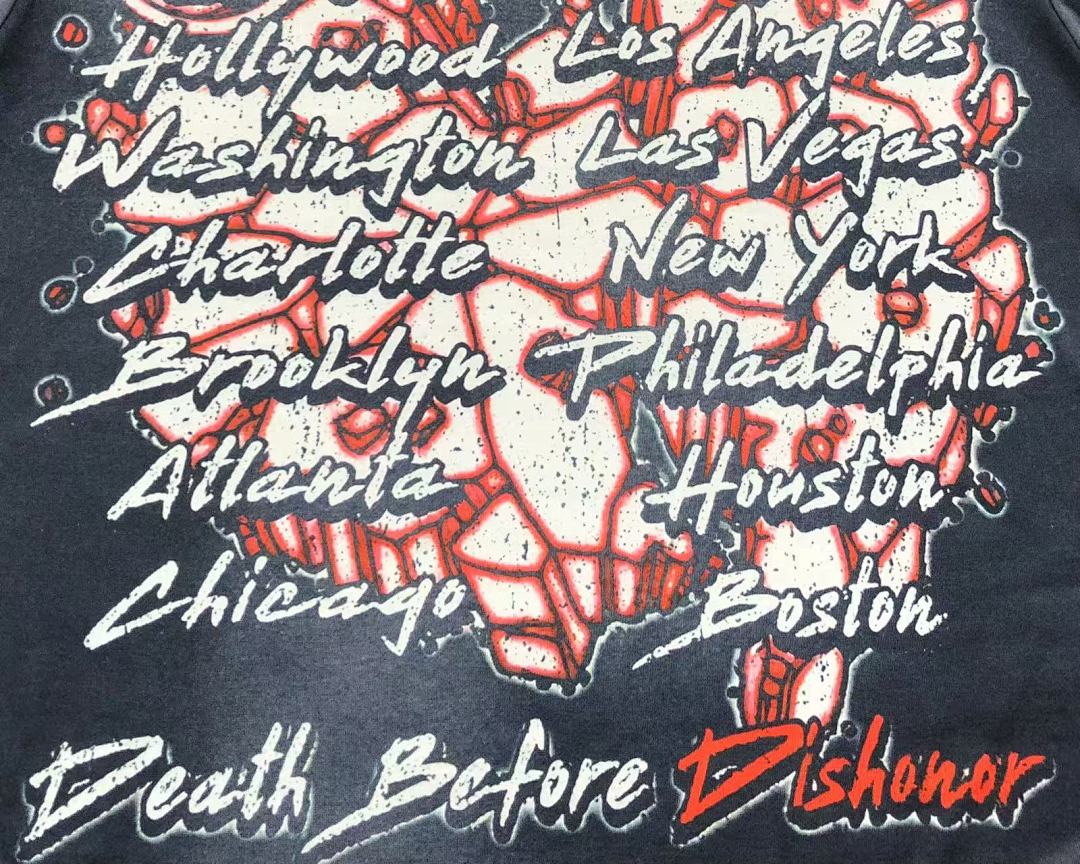 Hollywood Los Angeles
Washington Las Vegas
Charlotte New York
Brooklyn Philadelphia
Atlanta Houston
Chicago Boston
Death Before Dishonor